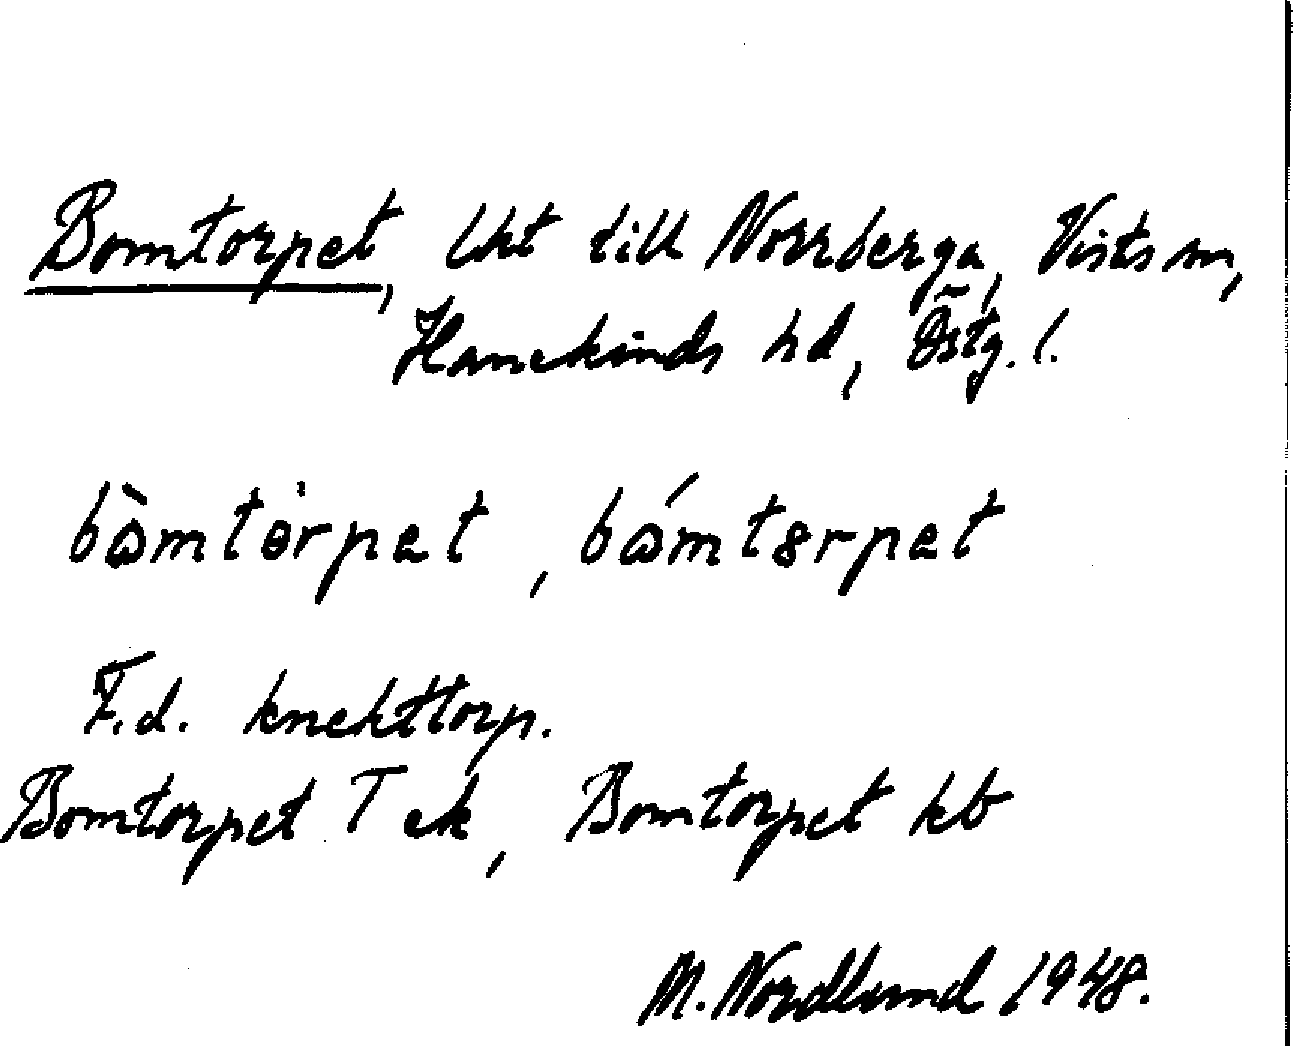 Bomtorpet, lht till Norrberga, Vists sn,
Hanekinds hd, Östg. l.
bòmtȯrpet, bómtorpet
F.d. knekttorp.
Bomtorpet T ek, Bomtorpet kb
M. Nordlund 1948.